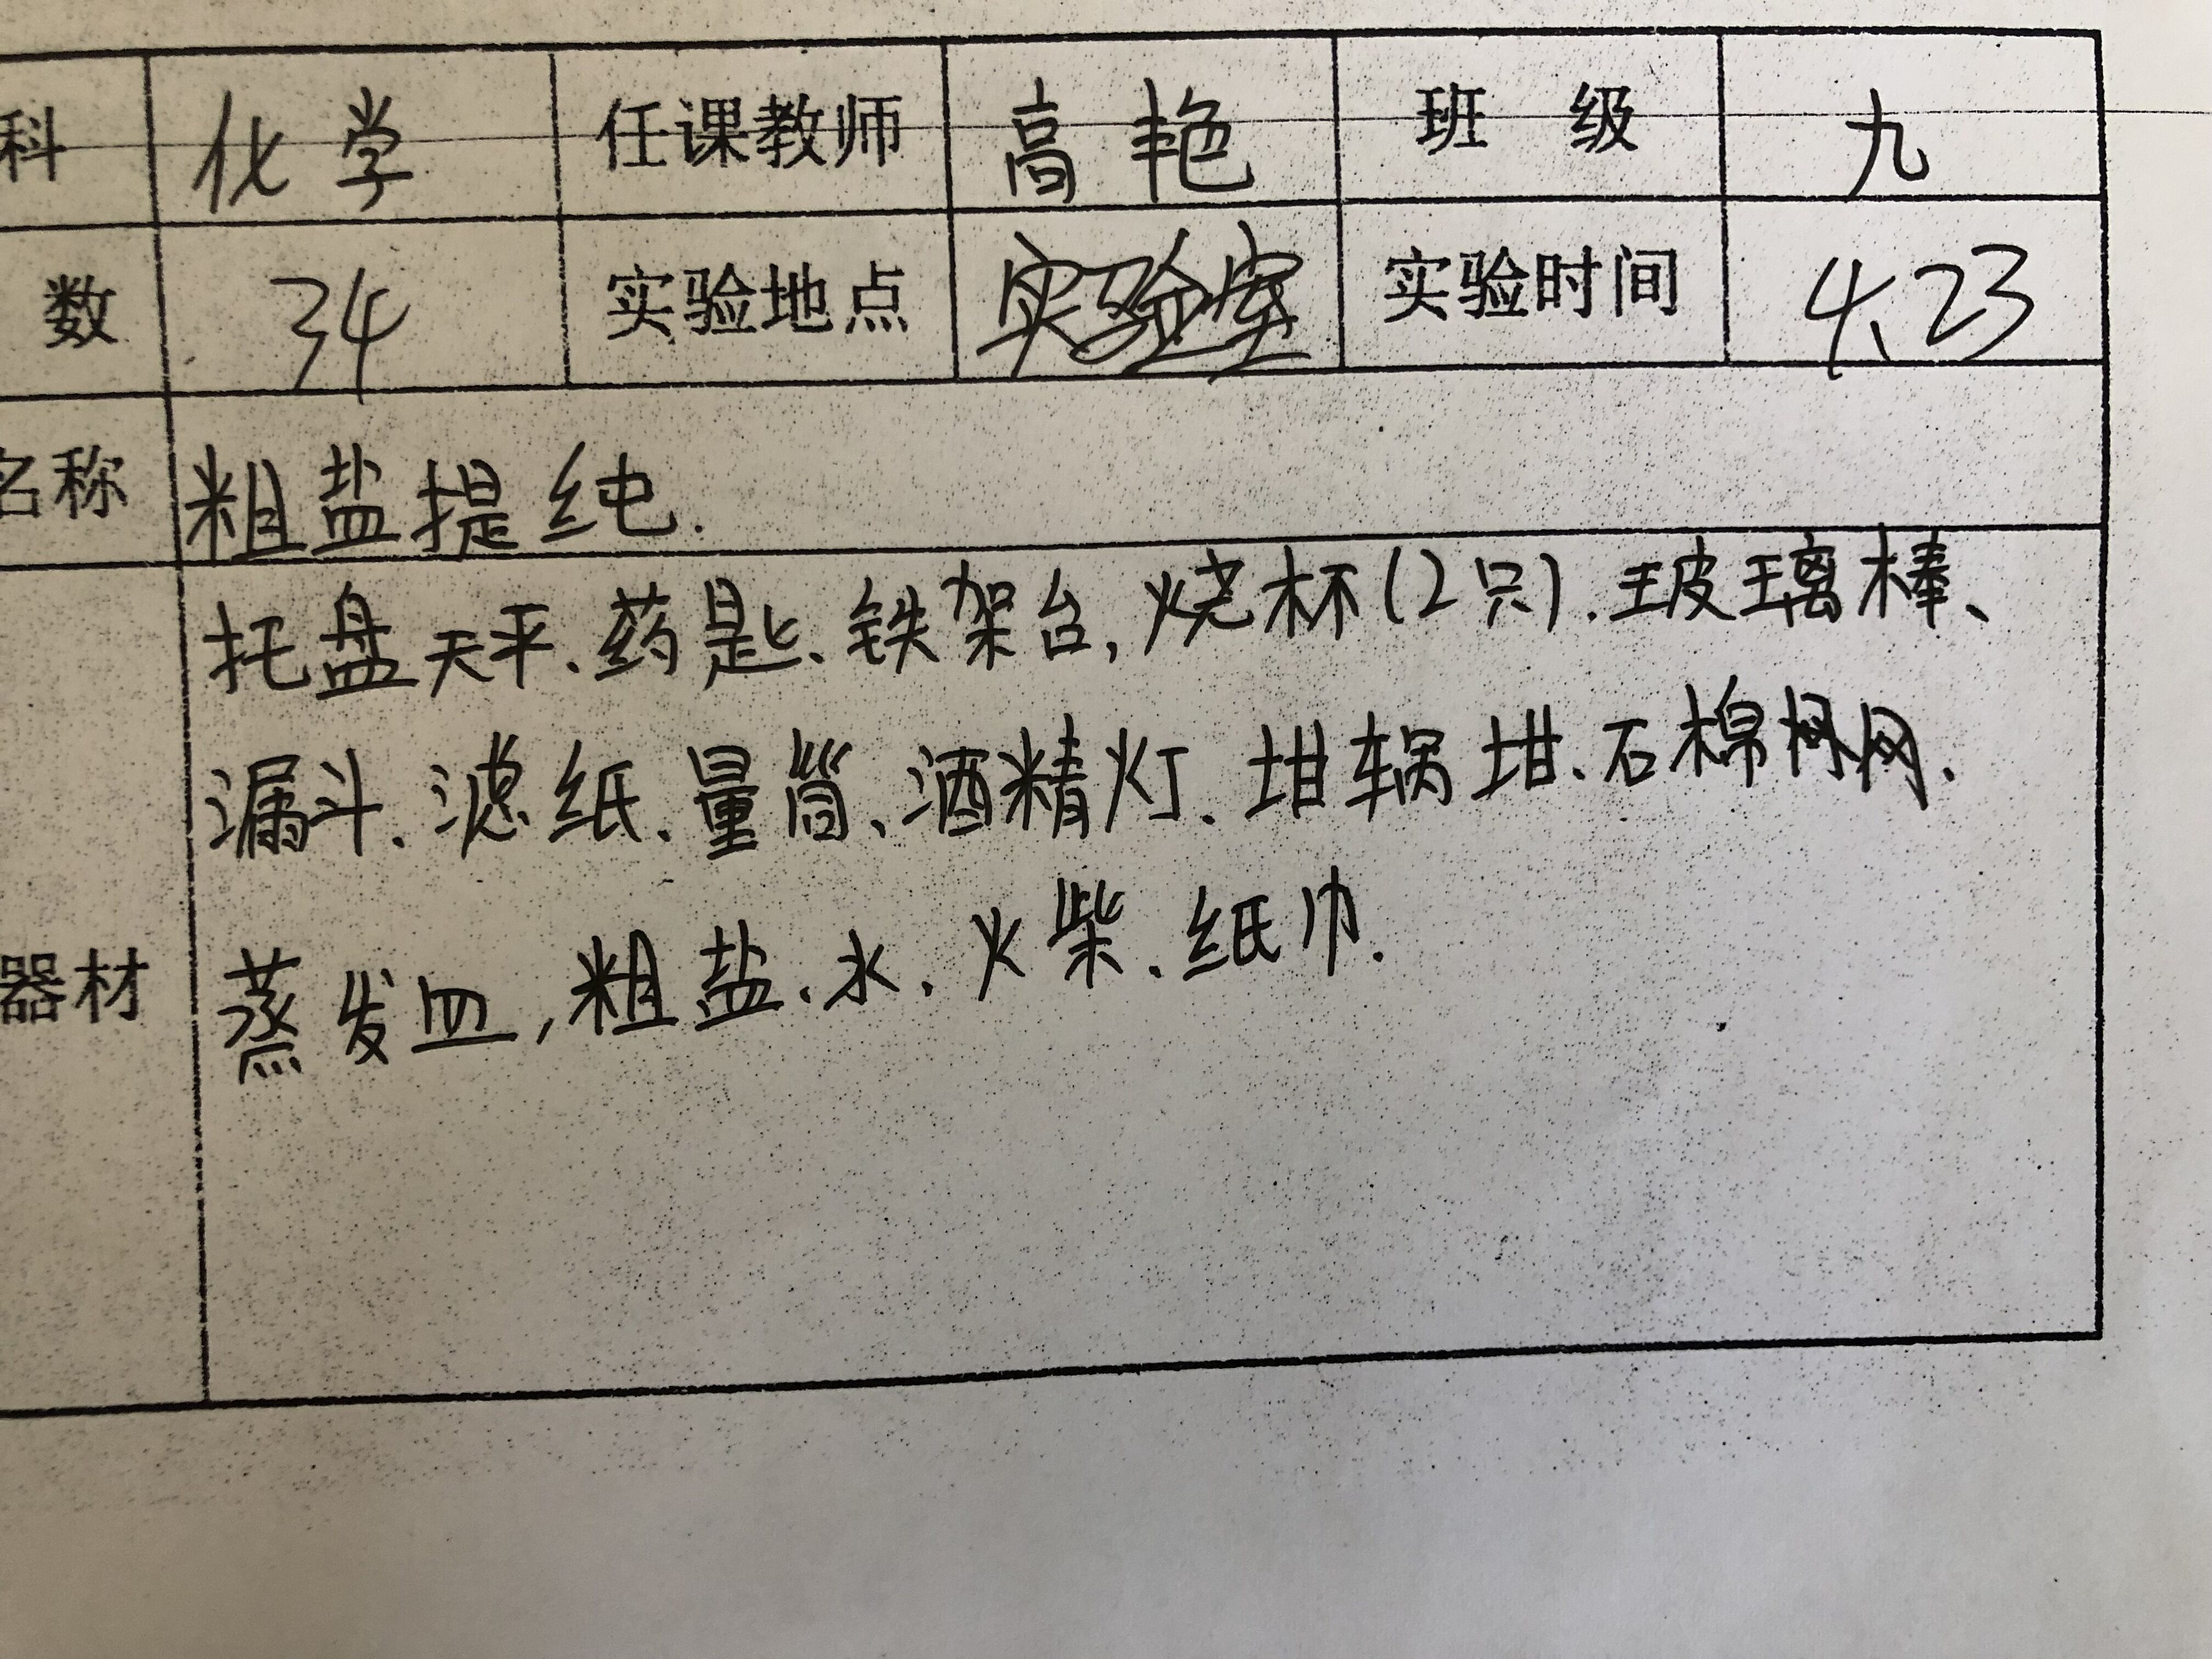 科 化学 任课教师 高艳 班 级 九
数 34 实验地点 实验室 实验时间 4、23
名称 粗盐提纯.
托盘天平、药匙、铁架台,烧杯(2只).玻璃棒、
漏斗.滤纸、量筒、酒精灯.坩 坩、石棉 网.
器材 蒸发皿,粗盐、水、火柴、纸巾.